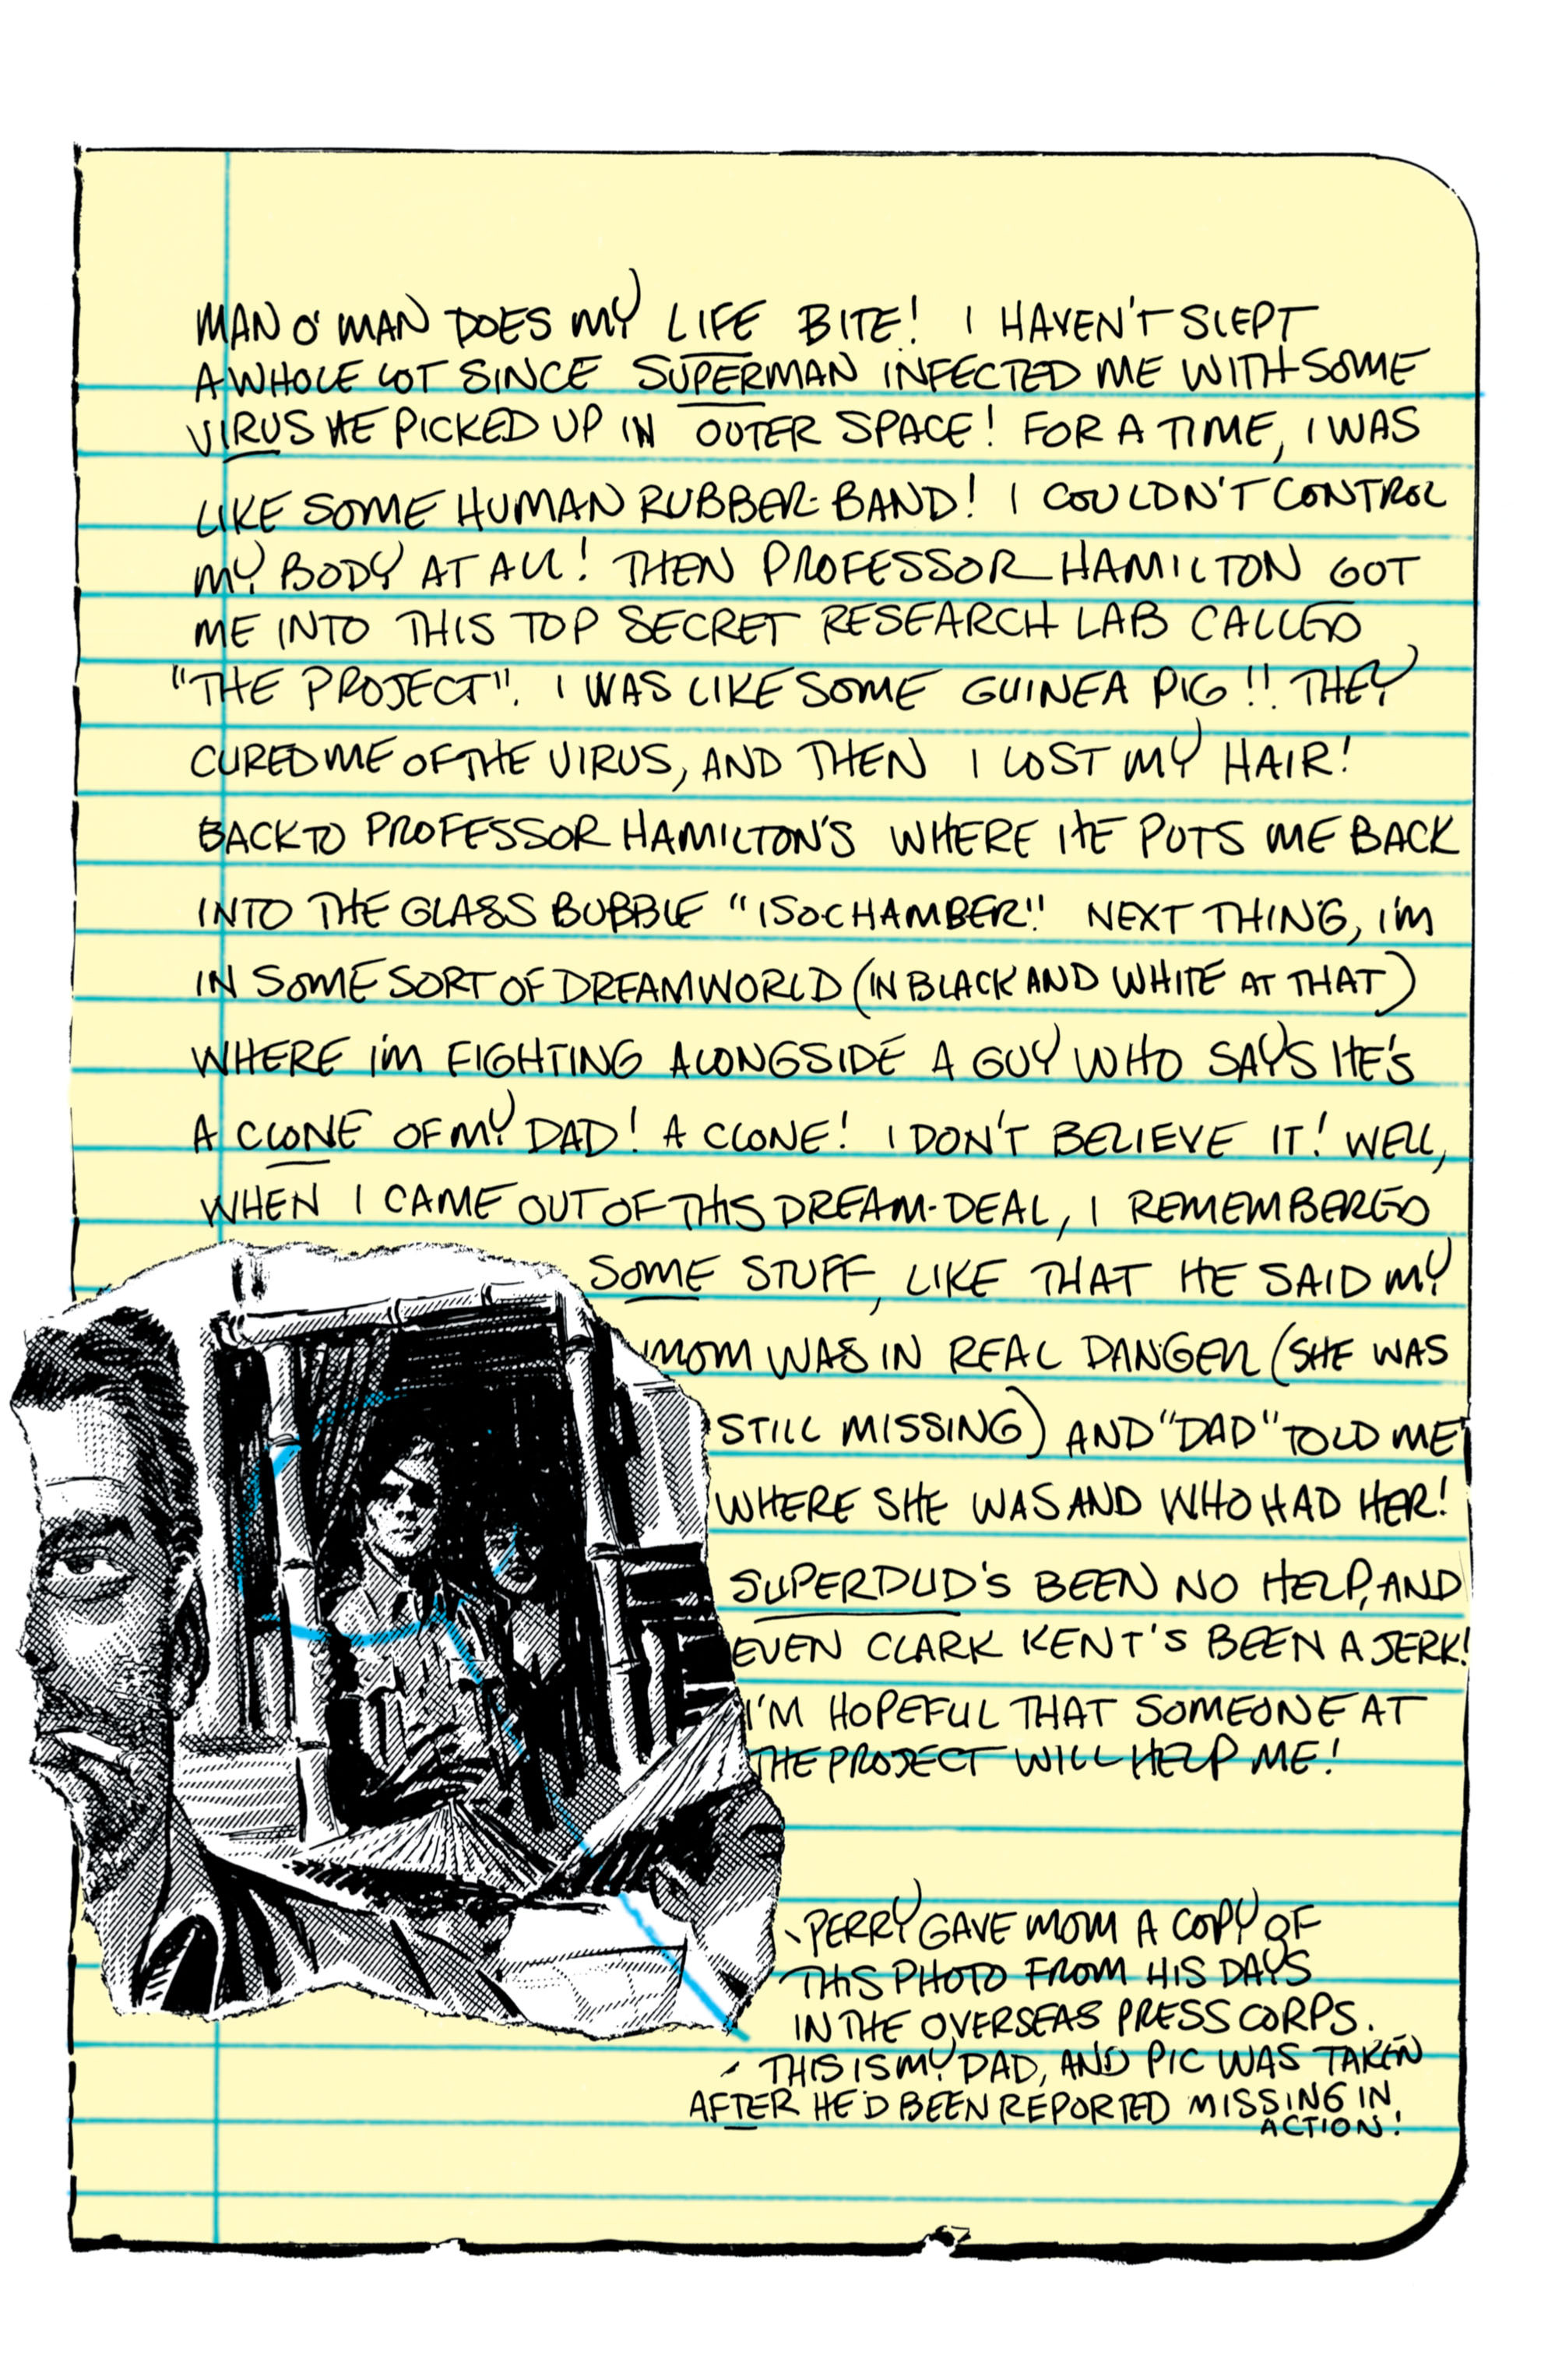 MAN O' MAN DOES MY LIFE BITE! I HAVEN'T SLEPT
A WHOLE LOT SINCE SUPERMAN INFECTED ME WITH SOME
VIRUS HE PICKED UP IN OUTER SPACE! FOR A TIME, I WAS
LIKE SOME HUMAN RUBBER-BAND! I COULDN'T CONTROL
MY BODY AT ALL! THEN PROFESSOR HAMILTON GOT
ME INTO THIS TOP SECRET RESEARCH LAB CALLED
"THE PROJECT". I WAS LIKE SOME GUINEA PIG!! THEY
CURED ME OF THE VIRUS, AND THEN I LOST MY HAIR!
BACK TO PROFESSOR HAMILTON'S WHERE HE PUTS ME BACK
INTO THE GLASS BUBBLE "ISO-CHAMBER!" NEXT THING, I'M
IN SOME SORT OF DREAMWORLD (IN BLACK AND WHITE AT THAT)
WHERE I'M FIGHTING ALONGSIDE A GUY WHO SAYS HE'S
A CLONE OF MY DAD! A CLONE! I DON'T BELIEVE IT! WELL,
WHEN I CAME OUT OF THIS DREAM-DEAL, I REMEMBERED
SOME STUFF, LIKE THAT HE SAID MY
MOM WAS IN REAL DANGER (SHE WAS
STILL MISSING) AND "DAD" TOLD ME
WHERE SHE WAS AND WHO HAD HER!
SUPERDUD'S BEEN NO HELP, AND
EVEN CLARK KENT'S BEEN A JERK!
I'M HOPEFUL THAT SOMEONE AT
THE PROJECT WILL HELP ME!
- PERRY GAVE MOM A COPY OF
THIS PHOTO FROM HIS DAYS
IN THE OVERSEAS PRESS CORPS.
- THIS IS MY DAD, AND PIC WAS TAKEN
AFTER HE'D BEEN REPORTED MISSING IN
ACTION!